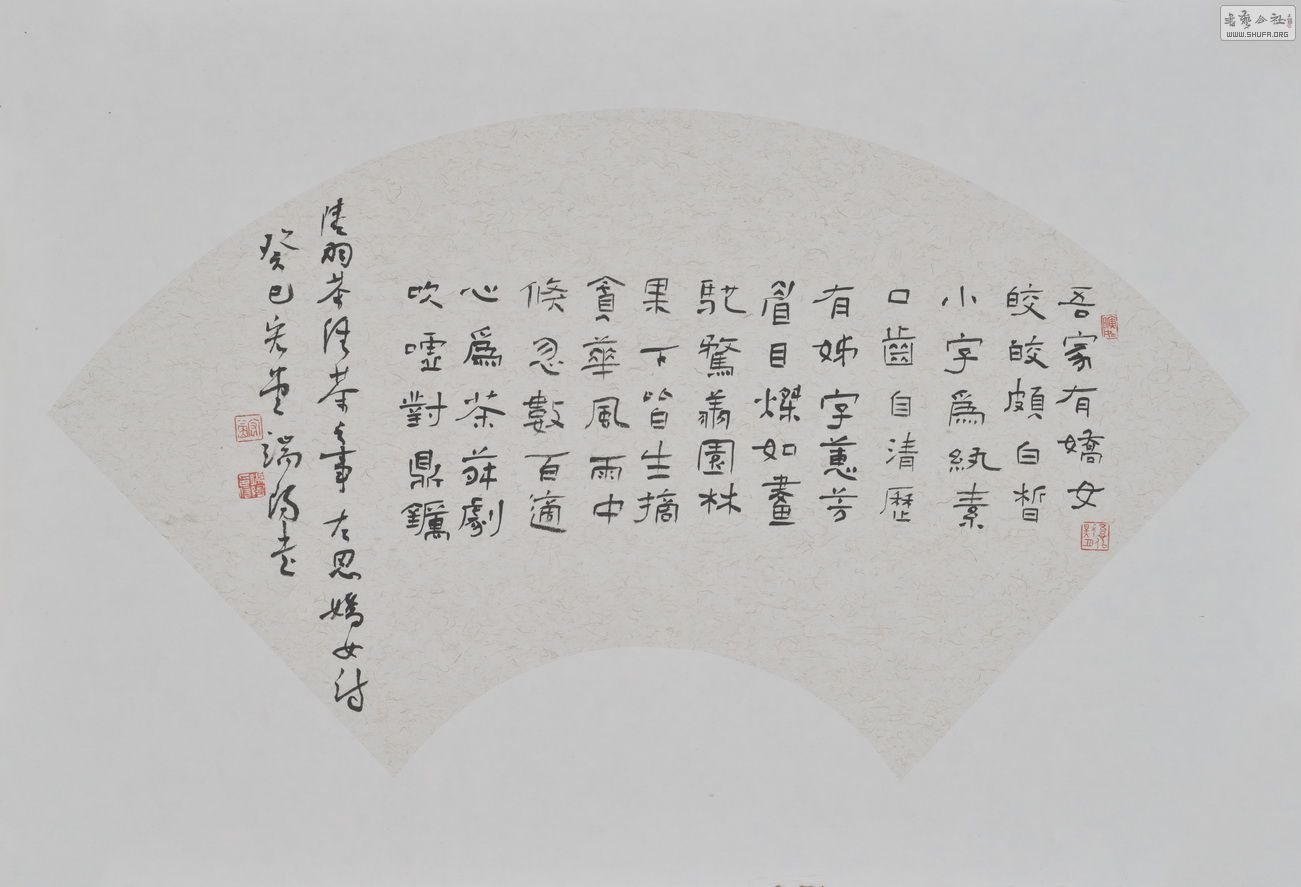 吾家有嬌女
皎皎頗白皙
小字爲紈素
口齒自清歷
有姊字蕙芳
眉目燦如畫
馳騖翔園林
果下皆生摘
貪華風雨中
倏忽數百適
心爲茶荈劇
吹噓對鼎䥶
陸羽茶経茶之事左思嬌女詩
癸巳
書艺公社
WWW.SHUFA.ORG